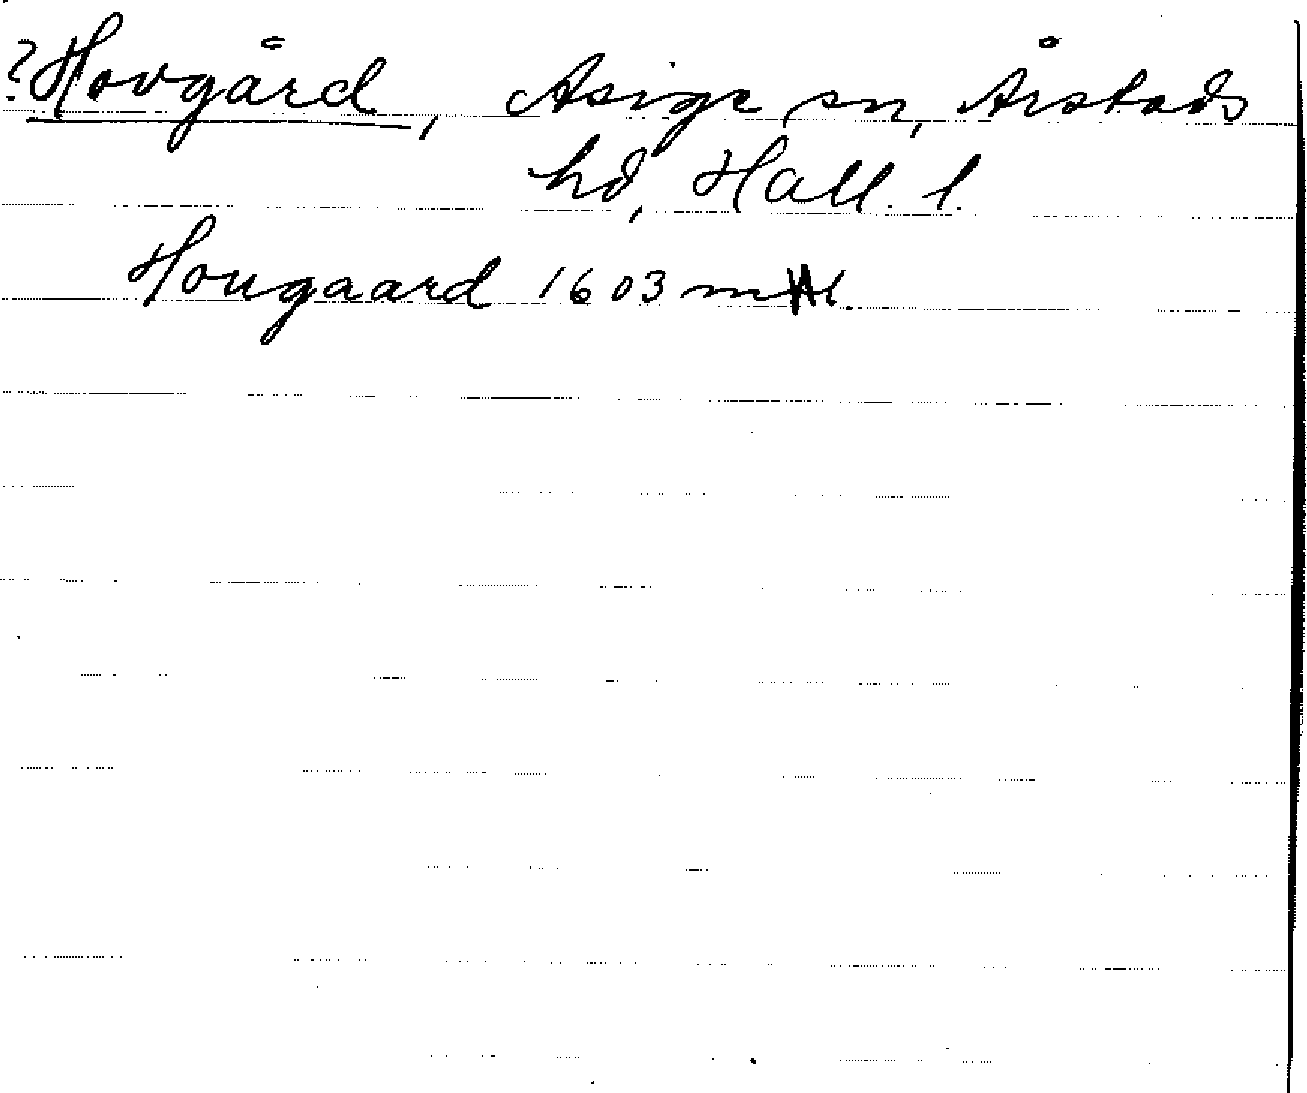 ?Hovgård, Asige sn, Årstads
hd, Hall. l.
Hougaard 1603